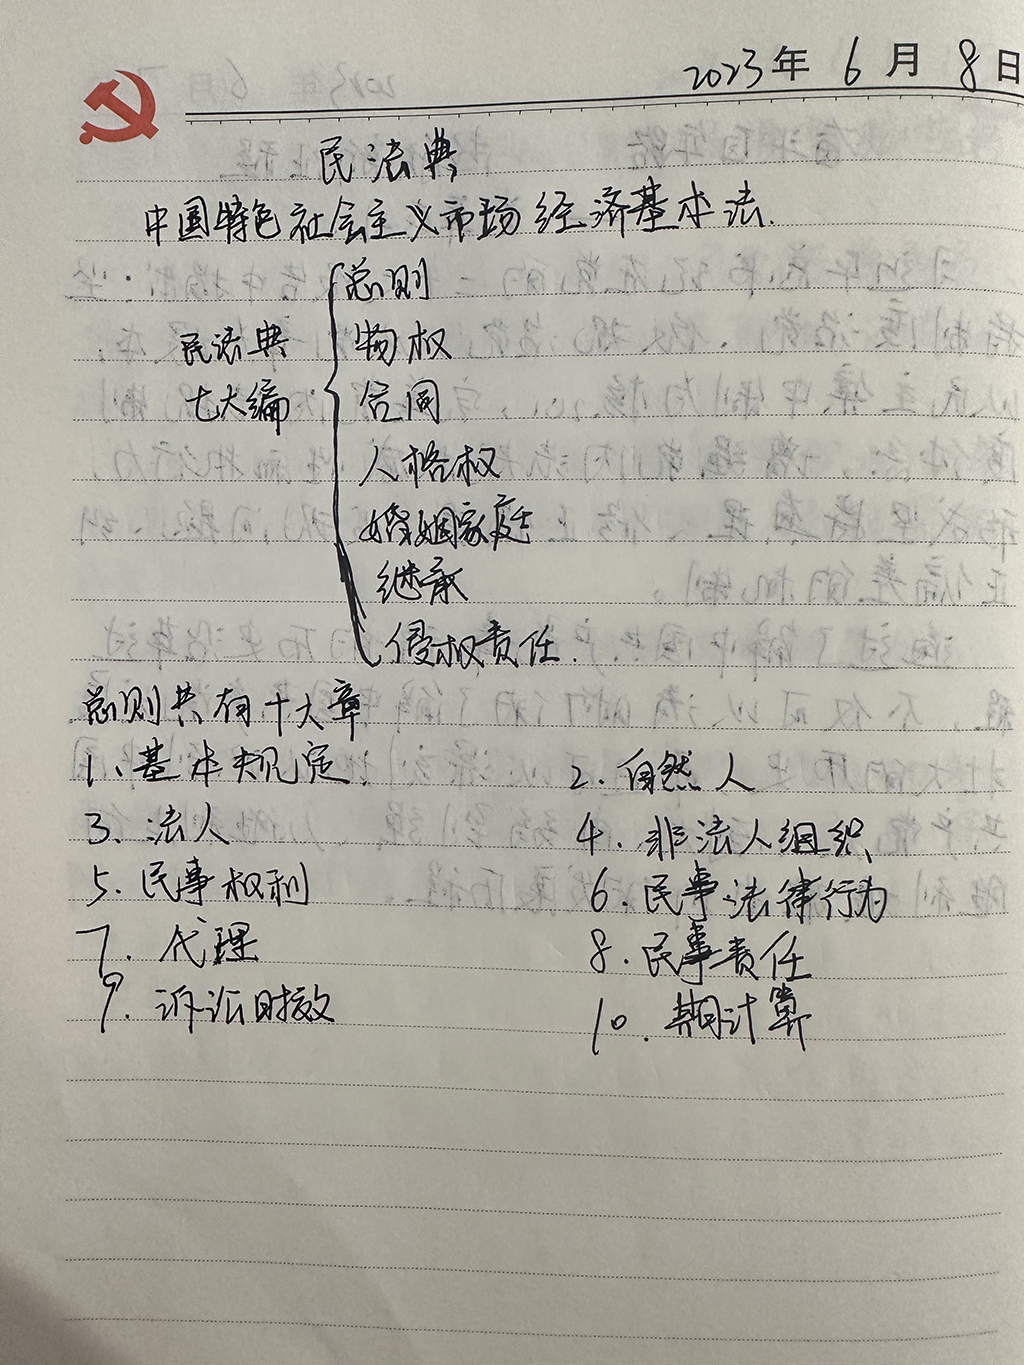 2023年6月8日
民法典
中国特色社会主义市场经济基本法.
民法典
七大编
总则
物权
合同
人格权
婚姻家庭
继承
侵权责任.
总则共有十大章
1、基本规定.
2.自然人
3.法人
4.非法人组织
5.民事权利
6.民事法律行为
7.代理
8.民事责任
9.诉讼时效
10.期计算